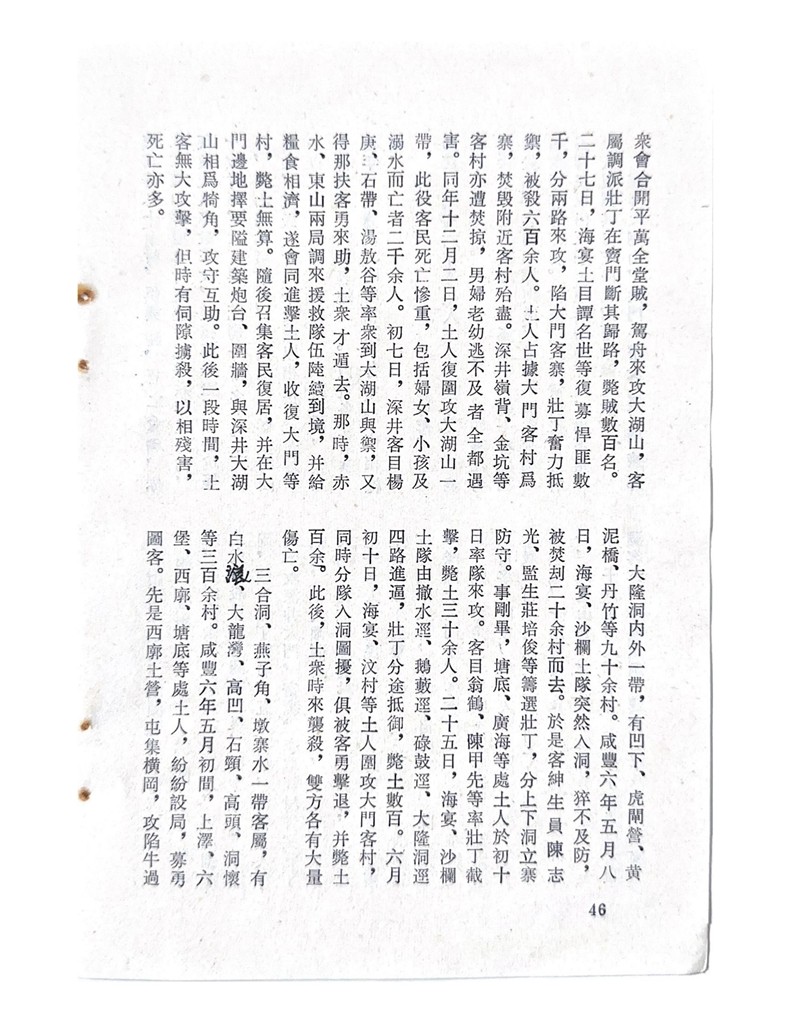 衆會合開平萬全堂賊，駕舟來攻大湖山，客
屬調派壯丁在竇門斷其歸路，斃賊數百名。
二十七日，海宴土目譚名世等復募悍匪數
千，分兩路來攻，陷大門客寨，壯丁奮力抵
禦，被殺六百余人。土人占據大門客村爲
寨，焚毀附近客村殆盡。深井嶺背、金坑等
客村亦遭焚掠，男婦老幼逃不及者全都遇
害。同年十二月二日，土人復圍攻大湖山一
帶，此役客民死亡慘重，包括婦女、小孩及
溺水而亡者二千余人。初七日，深井客目楊
庚、石帶、湯敖谷等率衆到大湖山與禦，又
得那扶客勇來助，土衆才遁去。那時，赤
水、東山兩局調來援救隊伍陸續到境，并給
糧食相濟，遂會同進擊土人，收復大門等
村，斃土無算。隨後召集客民復居，并在大
門邊地擇要隘建築炮台、圍牆，與深井大湖
山相爲犄角，攻守互助。此後一段時間，土
客無大攻擊，但時有伺隙擄殺，以相殘害，
死亡亦多。
大隆洞内外一帶，有凹下、虎閘營、黄
泥橋、丹竹等九十余村。咸豐六年五月八
日，海宴、沙欄土隊突然入洞，猝不及防，
被焚刦二十余村而去。於是客紳生員陳志
光、監生莊培俊等籌選壯丁，分上下洞立寨
防守。事剛畢，塘底、廣海等處土人於初十
日率隊來攻。客目翁鶴、陳甲先等率壯丁截
擊，斃土三十余人。二十五日，海宴、沙欄
土隊由撤水逕、鵝藪逕、碌鼓逕、大隆洞逕
四路進逼，壯丁分途抵御，斃土數百。六月
初十日，海宴、汶村等土人圍攻大門客村，
同時分隊入洞圖擾，俱被客勇擊退，并斃土
百余。此後，土衆時來襲殺，雙方各有大量
傷亡。
三合洞、燕子角、墩寨水一帶客屬，有
白水、大龍灣、高凹、石頸、高頭、洞懷
等三百余村。咸豐六年五月初間，上澤、六
堡、西廓、塘底等處土人，紛紛設局，募勇
圖客。先是西廓土營，屯集橫岡，攻陷牛過
46